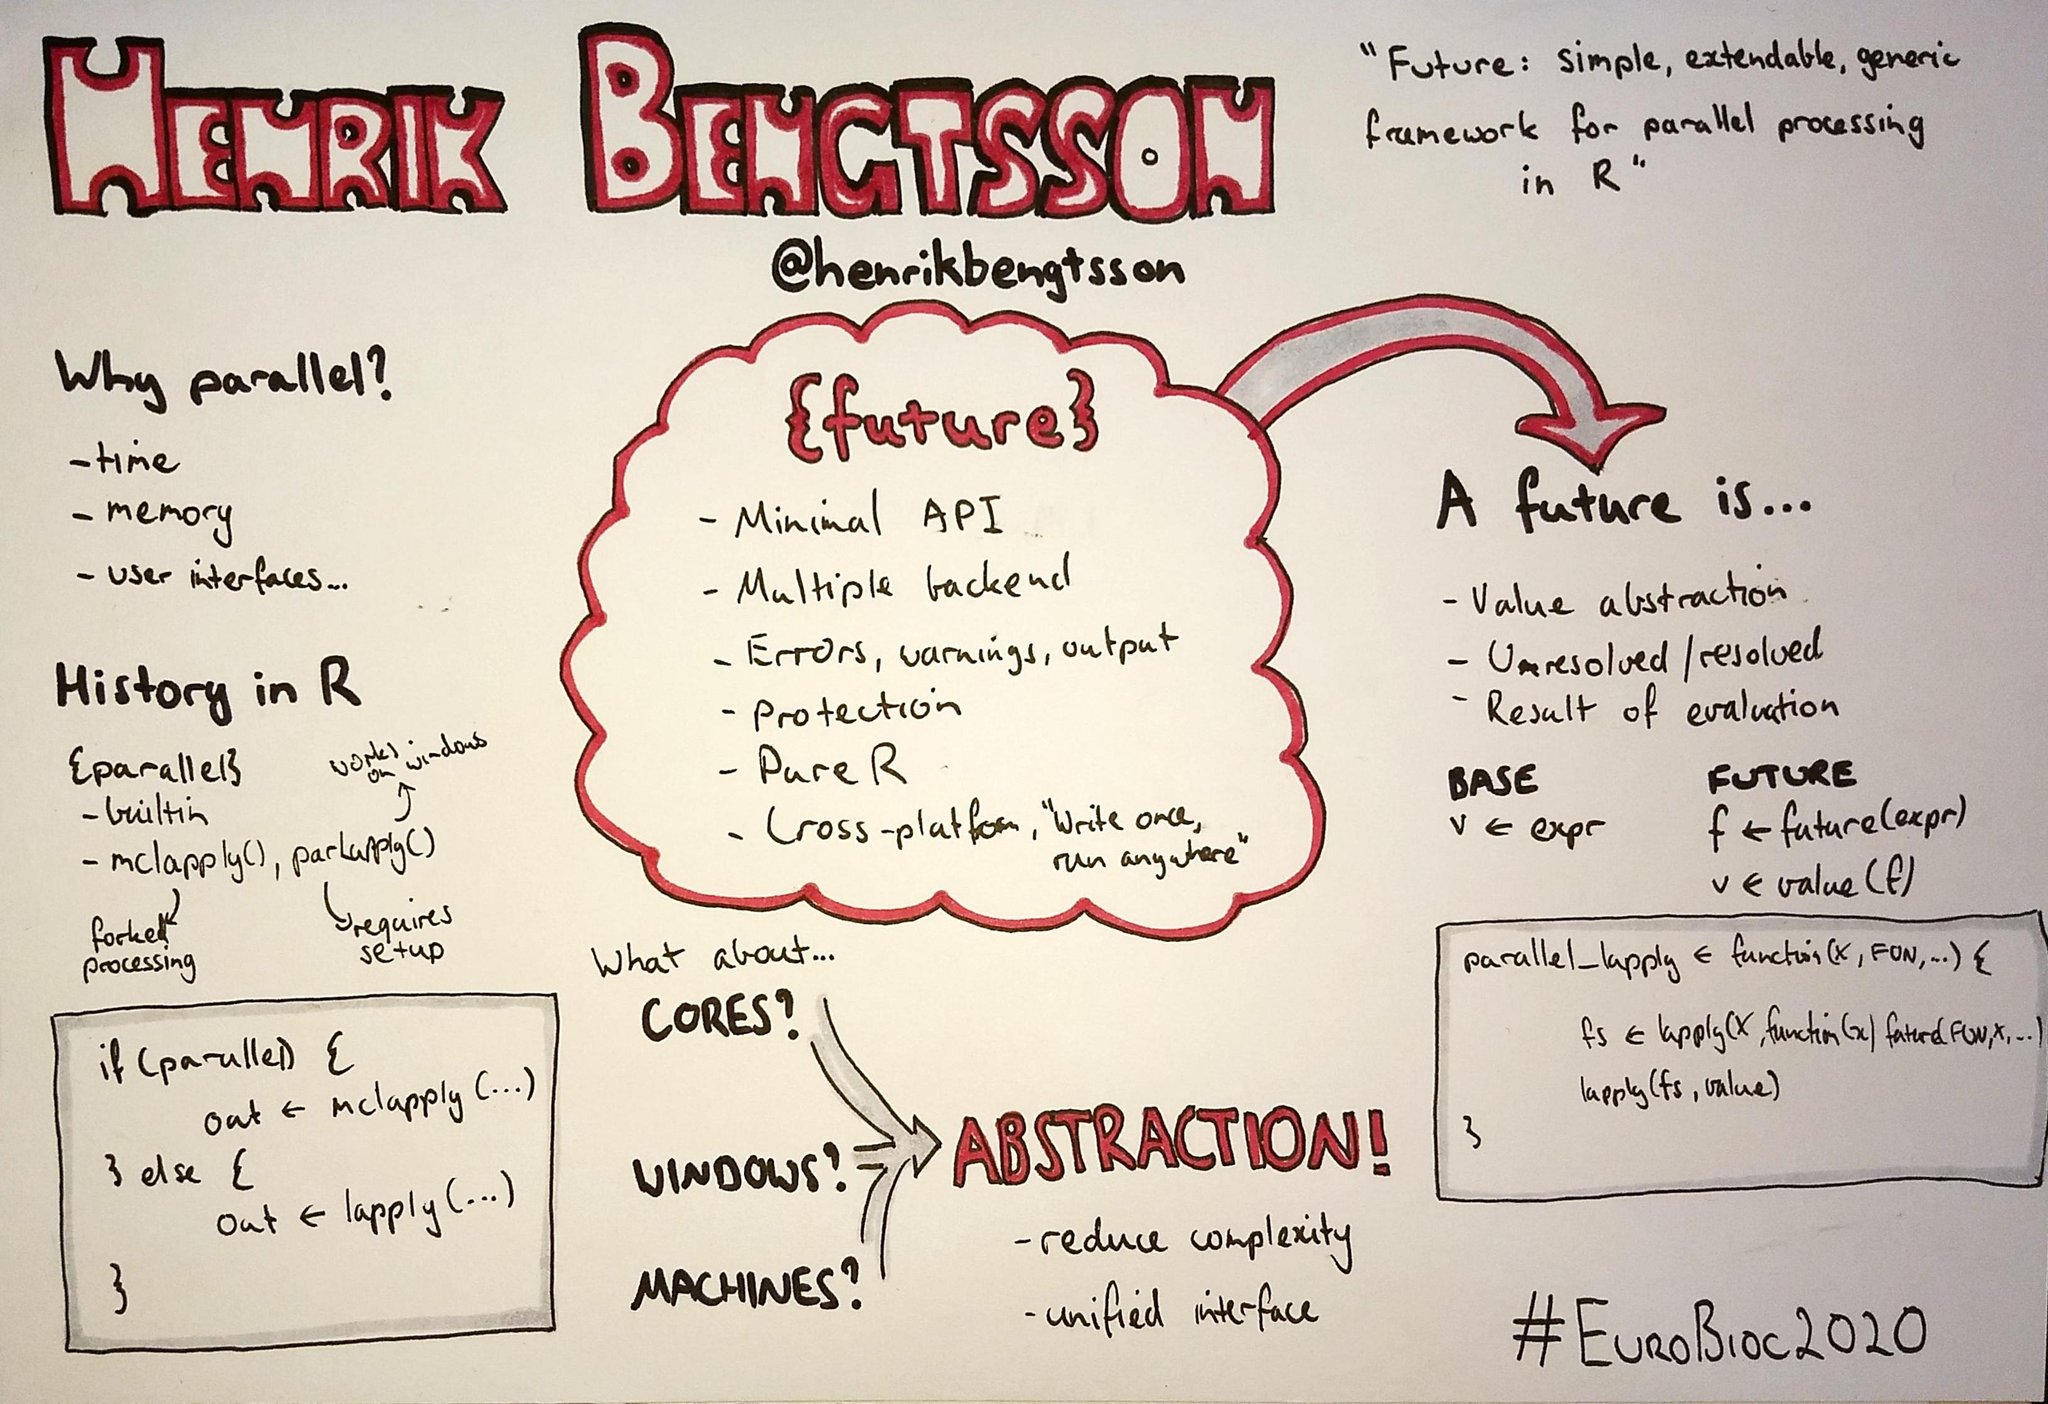 HENRIK BENGTSSON
@henrikbengtsson
"Future: simple, extendable, generic
framework for parallel processing
in R"
Why parallel?
- time
- memory
- user interfaces...
History in R
{parallel}
- builtin
- mclapply(), parLapply()
works
on windows
forked
processing
requires
setup
if (parallel) {
out ← mclapply (...)
} else {
out ← lapply (...)
}
{future}
- Minimal API
- Multiple backend
- Errors, warnings, output
- Protection
- Pure R
- Cross-platform, "Write once,
run anywhere"
What about...
CORES?
WINDOWS?
MACHINES?
ABSTRACTION!
- reduce complexity
- unified interface
A future is...
- Value abstraction
- Unresolved / resolved
- Result of evaluation
BASE
v ← expr
FUTURE
f ← future(expr)
v ← value (f)
parallel_lapply ← function(X, FUN, ...) {
fs ← lapply(X, function(x) future(FUN, x, ...)
lapply(fs, value)
}
#EUROBIOC2020